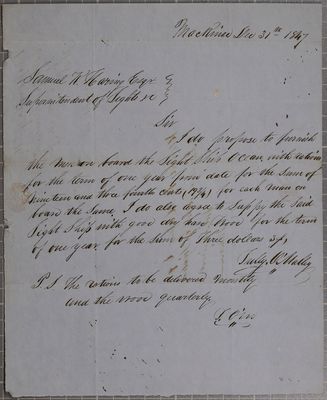 Mackinac Dec 31st 1847
Samuel W. Haring Esqr
Superintendent of Lights &c
Sir
I do propose to furnish
the men on board the Light Ship Ocean with rations
for the term of one year from date for the sum of
nineteen and three fourth cents (19¾) for each man on
board the same, I do also agree to supply the said
Light Ship with good dry hard wood for the term
of one year for the sum of three dollars
P.S. The rations to be delivered monthly
and the wood quarterly